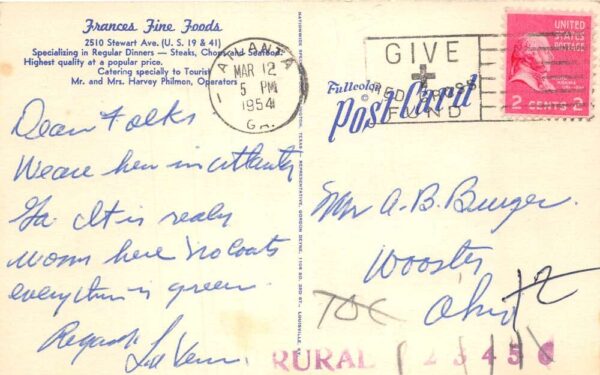 Frances Fine Foods
2510 Stewart Ave. (U. S. 19 & 41)
Specializing in Regular Dinners — Steaks, Chops and Seafood.
Highest quality at a popular price.
Catering specially to Tourist
Mr. and Mrs. Harvey Philmon, Operators
ATLANTA
MAR 12
5 PM
1954
GA.
GIVE
RED CROSS
FUND
UNITED
STATES
POSTAGE
2 CENTS 2
Fullcolor
Post Card
Dear Folks
We are here in Atlanta
Ga. It is realy
warm here no coats
everything is green.
Regards
La Vern
Mr A. B. Burger.
Wooster
Ohio
RURAL 2 3 4 5 6